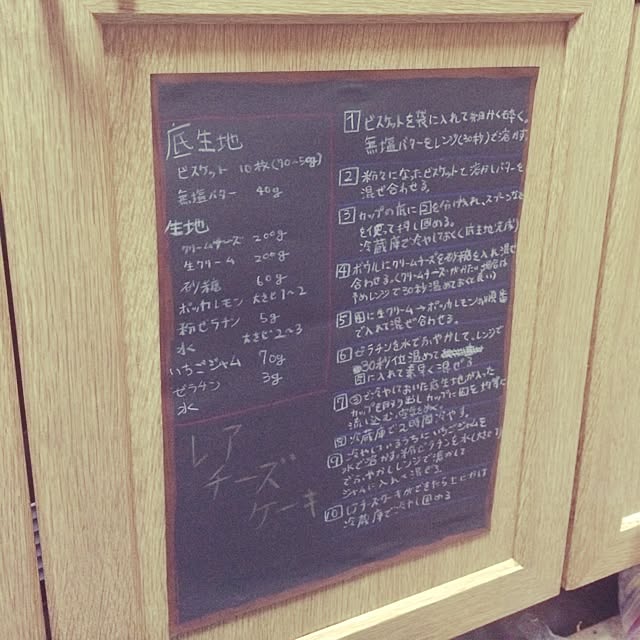 底生地
ビスケット 10枚(90~50g)
無塩バター 40g
生地
クリームチーズ 200g
生クリーム 200g
砂糖 60g
ポッカレモン 大さじ1~2
粉ゼラチン 5g
水 大さじ2~3
いちごジャム 70g
ゼラチン 3g
水
レア
チーズ
ケーキ
1 ビスケットを袋に入れて細かく砕く。
無塩バターをレンジ(30秒)で溶かす
2 粉々になったビスケットと溶かしバターを
混ぜ合わせる。
3 カップの底に2を分け入れ、スプーンなど
を使って押し固める。
冷蔵庫で冷やしておく(底生地完成)
4 ボウルにクリームチーズを砂糖を入れ混ぜ
合わせる。(クリームチーズがかたい場合は
予めレンジで30秒温めておくと良い)
5 4に生クリーム→ポッカレモンの順番
で入れて混ぜ合わせる。
6 ゼラチンを水でふやかして、レンジで
30秒位温めて
5に入れて素早く混ぜる
7 3で冷やしておいた底生地が入った
カップを取り出しカップに6を均等に
流し込む。
8 冷蔵庫で2時間冷やす。
9 冷やしているうちにいちごジャムを
水で溶かす。粉ゼラチンを水(大さじ
でふやかしレンジで温めて
ジャムに入れて混ぜる。
10 レアチーズケーキができたら上にかけ
冷蔵庫で冷やし固める